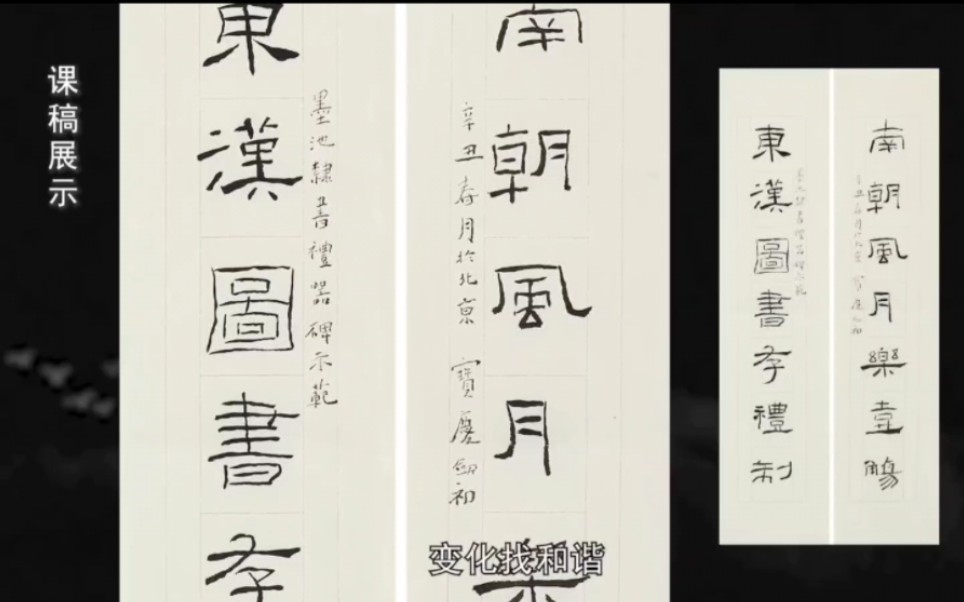 课稿展示
南朝風月樂
辛丑春月於北京 寶慶 初
東漢圖書存
墨池隸音禮器碑示範
南朝風月樂壺觴
東漢圖書存禮制
变化找和谐